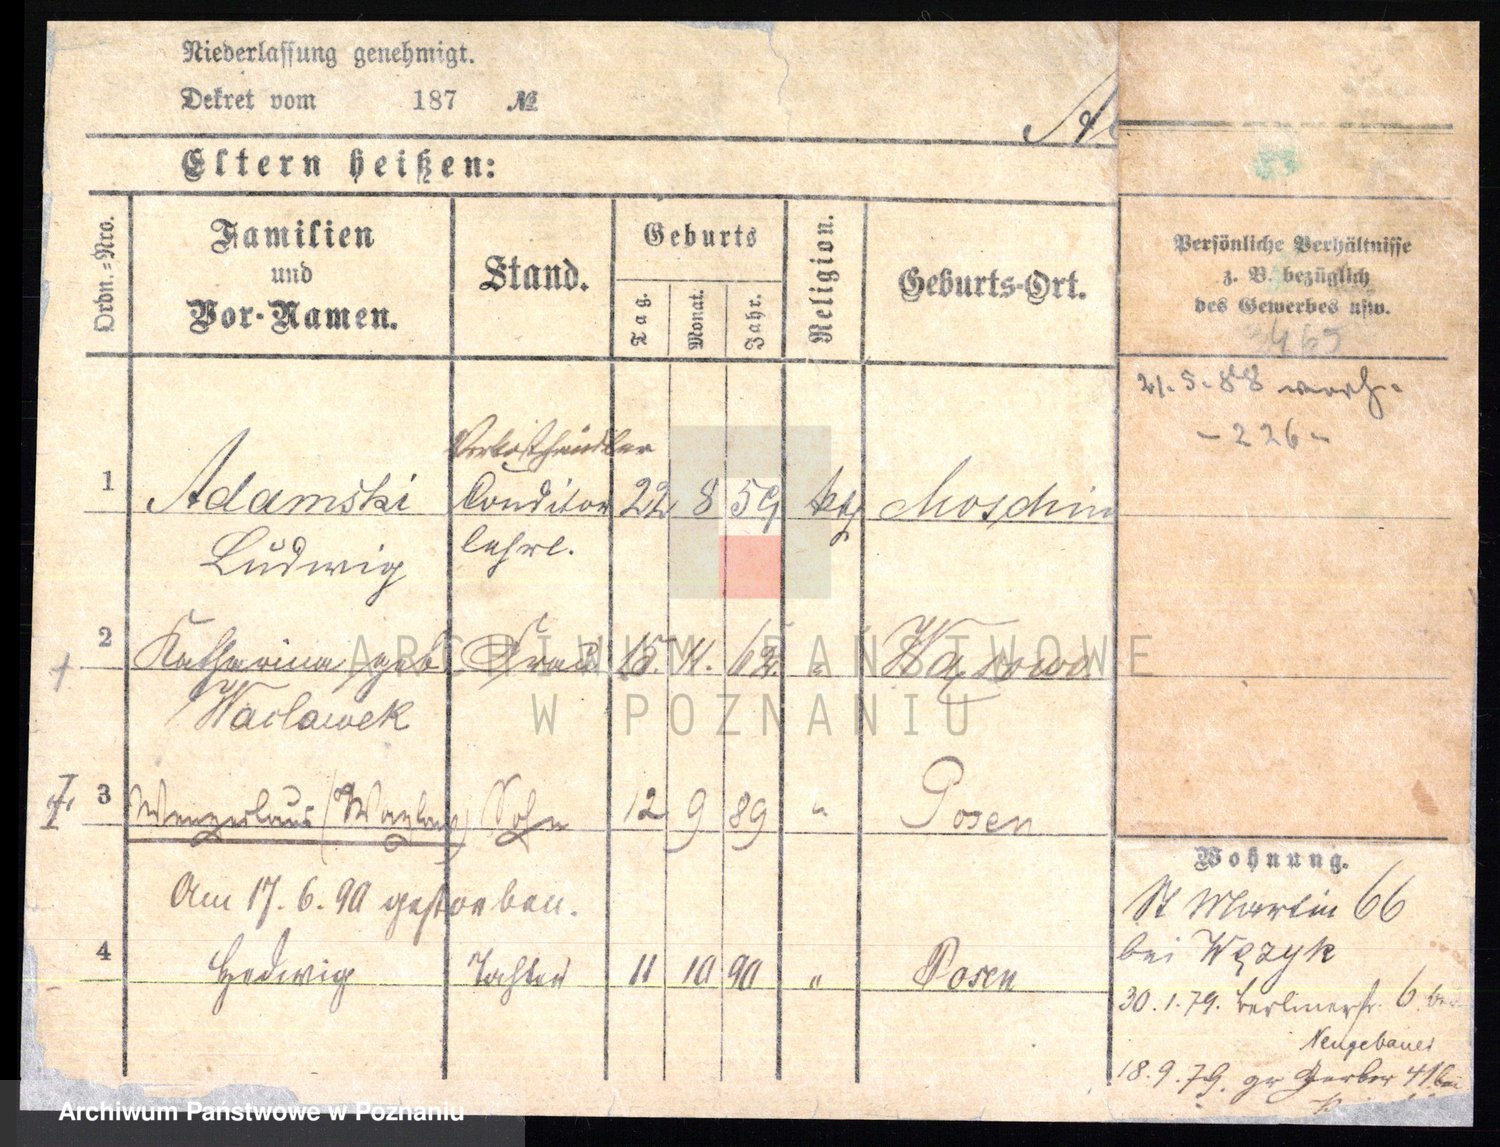 Niederlassung genehmigt.
Dekret vom 187 №
Eltern heißen:
Ordn.-Nro.
Familien
und
Vor-Namen.
Stand.
Geburts
Tag.
Monat.
Jahr.
Religion.
Geburts-Ort.
Persönliche Verhältnisse
z. B. bezüglich
des Gewerbes usw.
3465
21.5.88
- 226 -
Vorkosthändler
1 Adamski Conditor 22 8 59 kth Moschin
Ludwig lehrl.
2 Katharina geb. Frau 15. 11. 62. "
Waclawek
3 Wenzeslaus (Waclaw) Sohn 12 9 89 " Posen
Am 17. 6. 90 gestorben.
4 Hedwig Tochter 11 10 90 " Posen
Wohnung.
St Martin 66
bei Węzyk
30.1.79. Berlinerstr. 6 bei
Neugebauer
18.9.79. gr Gerber 41 bei
ARCHIWUM PAŃSTWOWE
W POZNANIU
Archiwum Państwowe w Poznaniu